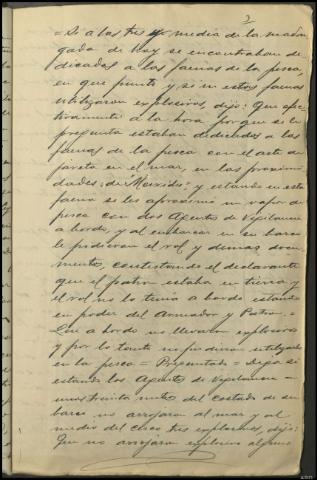 2
= Si a las tres y media de la madru
gada de hoy se encontraban de
dicados a las faenas de la pesca,
en que punto y si en estas faenas
utilizaron explosivos, dijo: Que efec
tivamente a la hora porque se le
pregunta estaban dedicados a las
faenas de la pesca con el arte de
jareta en el mar, en las proximi
dades de y estando en esta
faena se les aproximó un vapor de
pesca con dos Agentes de Vigilancia
a bordo, y al embarcar en su barco
le pidieron el rol y demas docu
mentos, contestando el declarante
que el patron estaba en tierra y
el rol no lo tenia a bordo estando
en poder del Armador y Patron. =
Que a bordo no llevaron explosivos
y por lo tanto no pudieron utilizarlos
en la pesca = Preguntado = Diga si
estando los Agentes de Vigilancia
unos treinta metros del costado de su
barco no arrojaron al mar y al
medio del cerco tres explosivos, dijo:
Que no arrojaron explosivo alguno